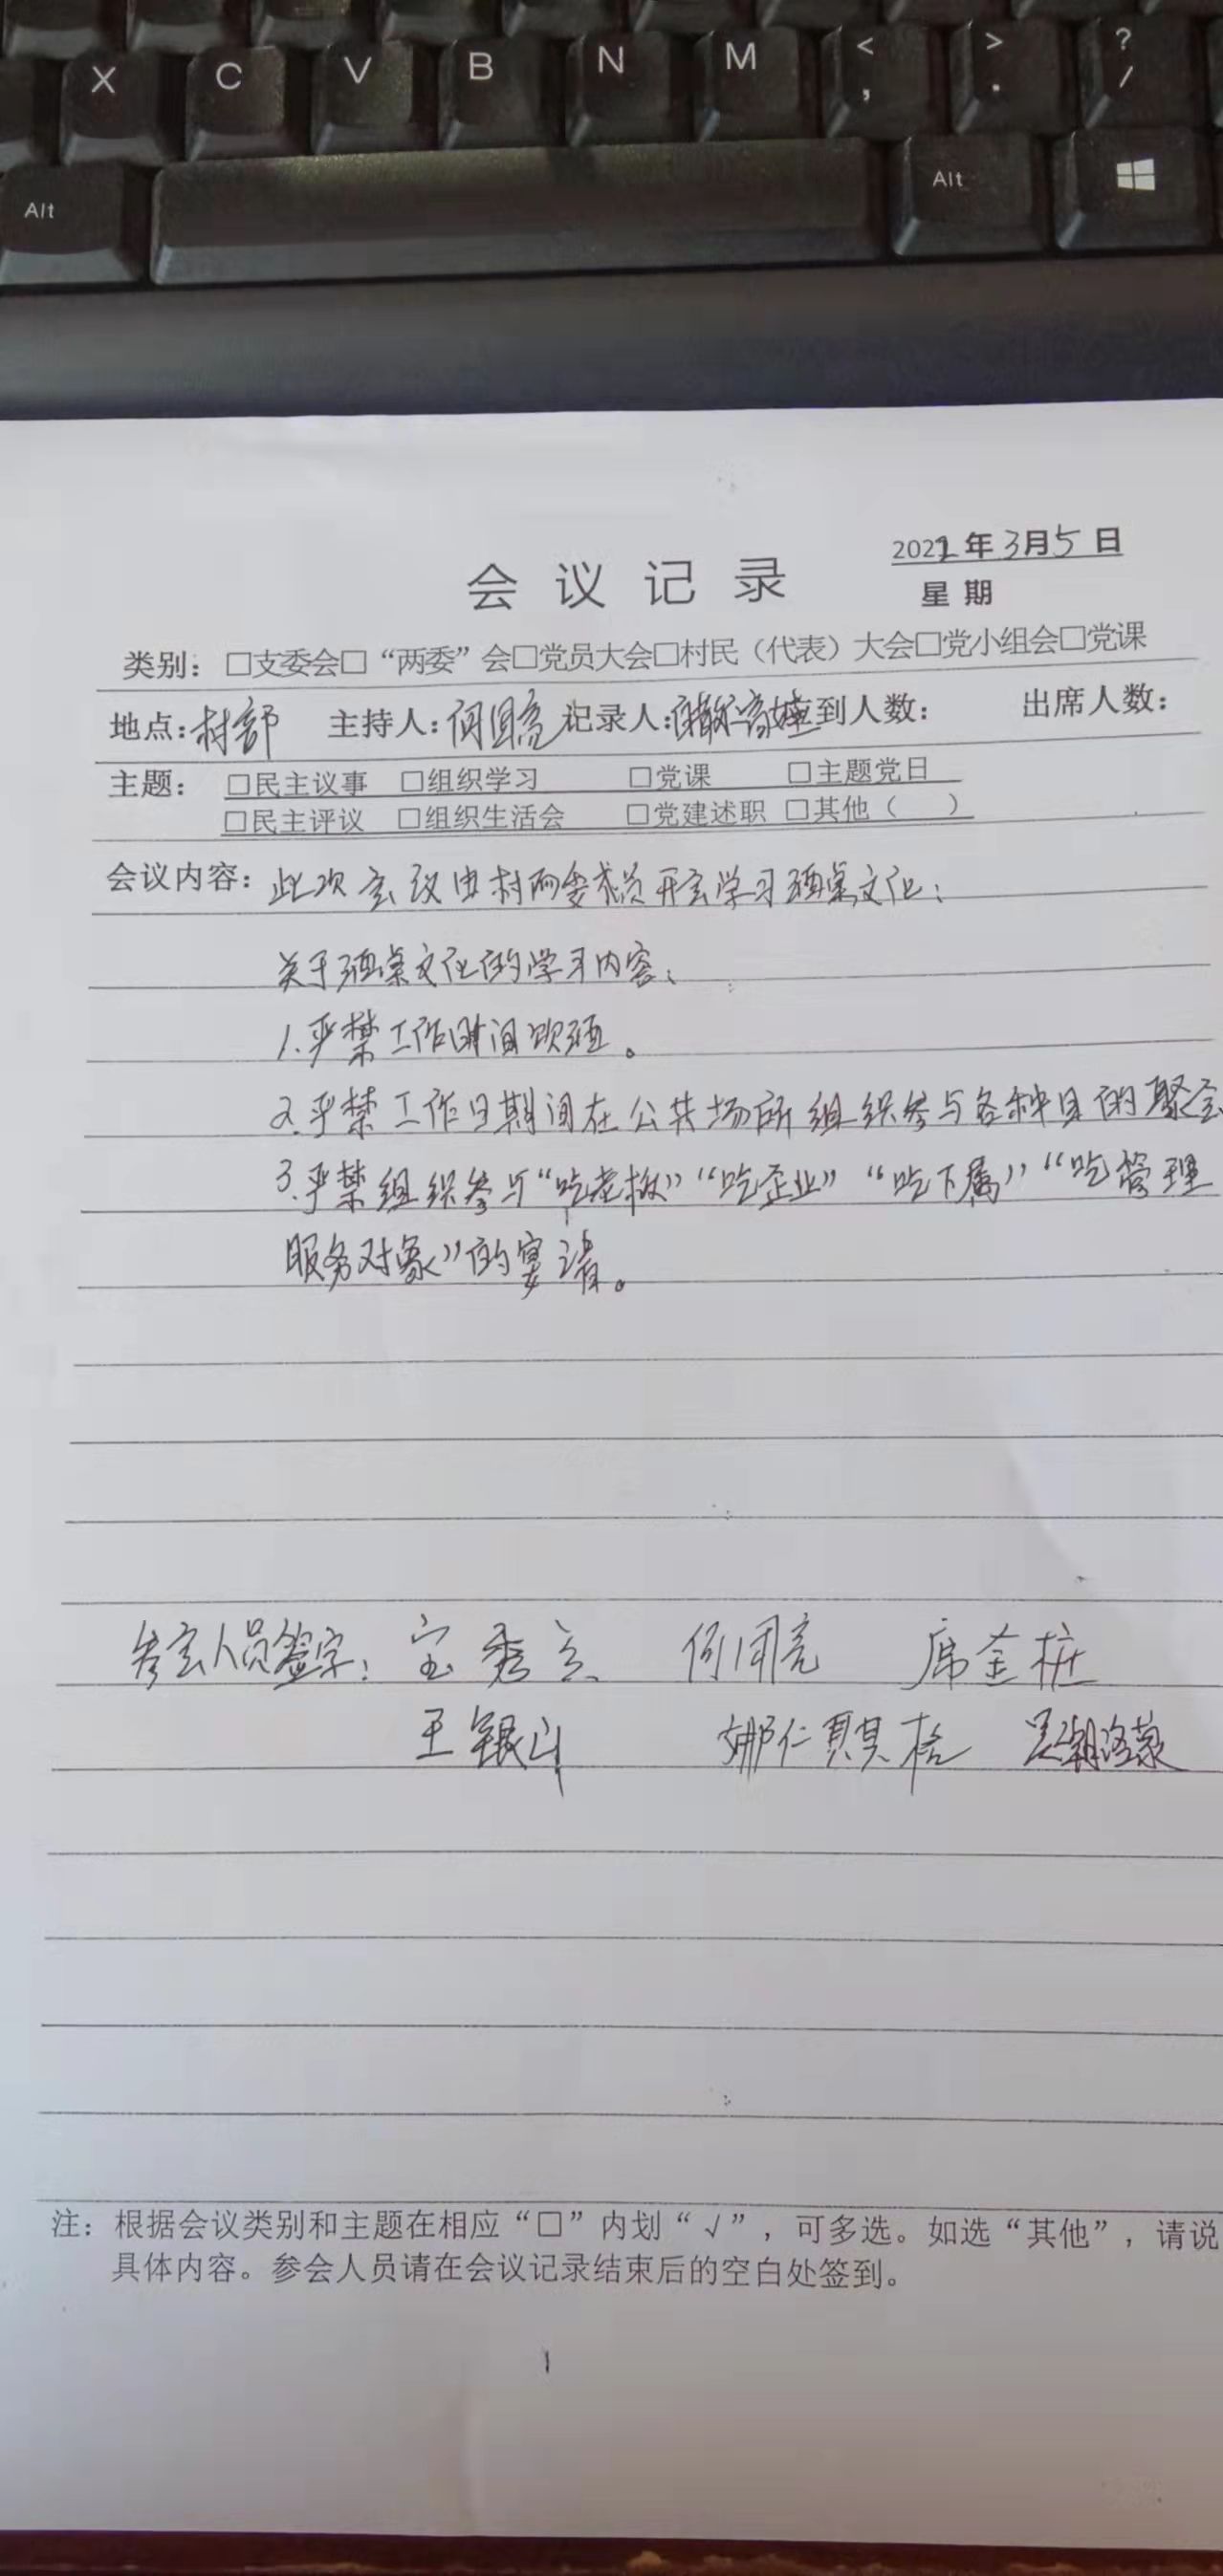 X C V B N M < , > . ? /
Alt Alt
会议记录
2021年3月5日
星期
类别：□支委会□“两委”会□党员大会□村民（代表）大会□党小组会□党课
地点：村部 主持人：何国亮 记录人： 到人数： 出席人数：
主题： □民主议事 □组织学习 □党课 □主题党日
□民主评议 □组织生活会 □党建述职 □其他（ ）
会议内容：此次会议由村两委成员开会学习酒桌文化：
关于酒桌文化的学习内容：
1.严禁工作时间饮酒。
2.严禁工作日期间在公共场所组织参与各种目的聚会
3.严禁组织参与“吃老板”“吃企业”“吃下属”“吃管理
服务对象”的宴请。
参会人员签字：宝秀 何国亮 席金桩
王银山 娜仁其其格
注：根据会议类别和主题在相应“□”内划“√”，可多选。如选“其他”，请说
具体内容。参会人员请在会议记录结束后的空白处签到。
1